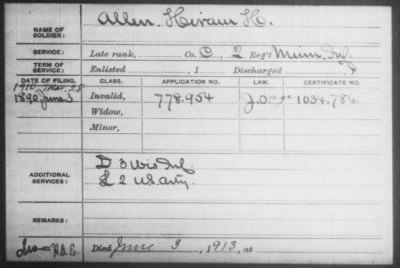 NAME OF SOLDIER: Allen, Hiram H.
SERVICE: Late rank, Co. C, 2 Reg't Minn Inf.
TERM OF SERVICE: Enlisted , 1 Discharged , 1
DATE OF FILING. CLASS. APPLICATION NO. LAW. CERTIFICATE NO.
1890 June 3 Invalid, 778.954
Widow,
Minor,
ADDITIONAL SERVICES: D 3 Wis Inf
L 2 US Arty.
REMARKS:
Died June 3, 1913, at